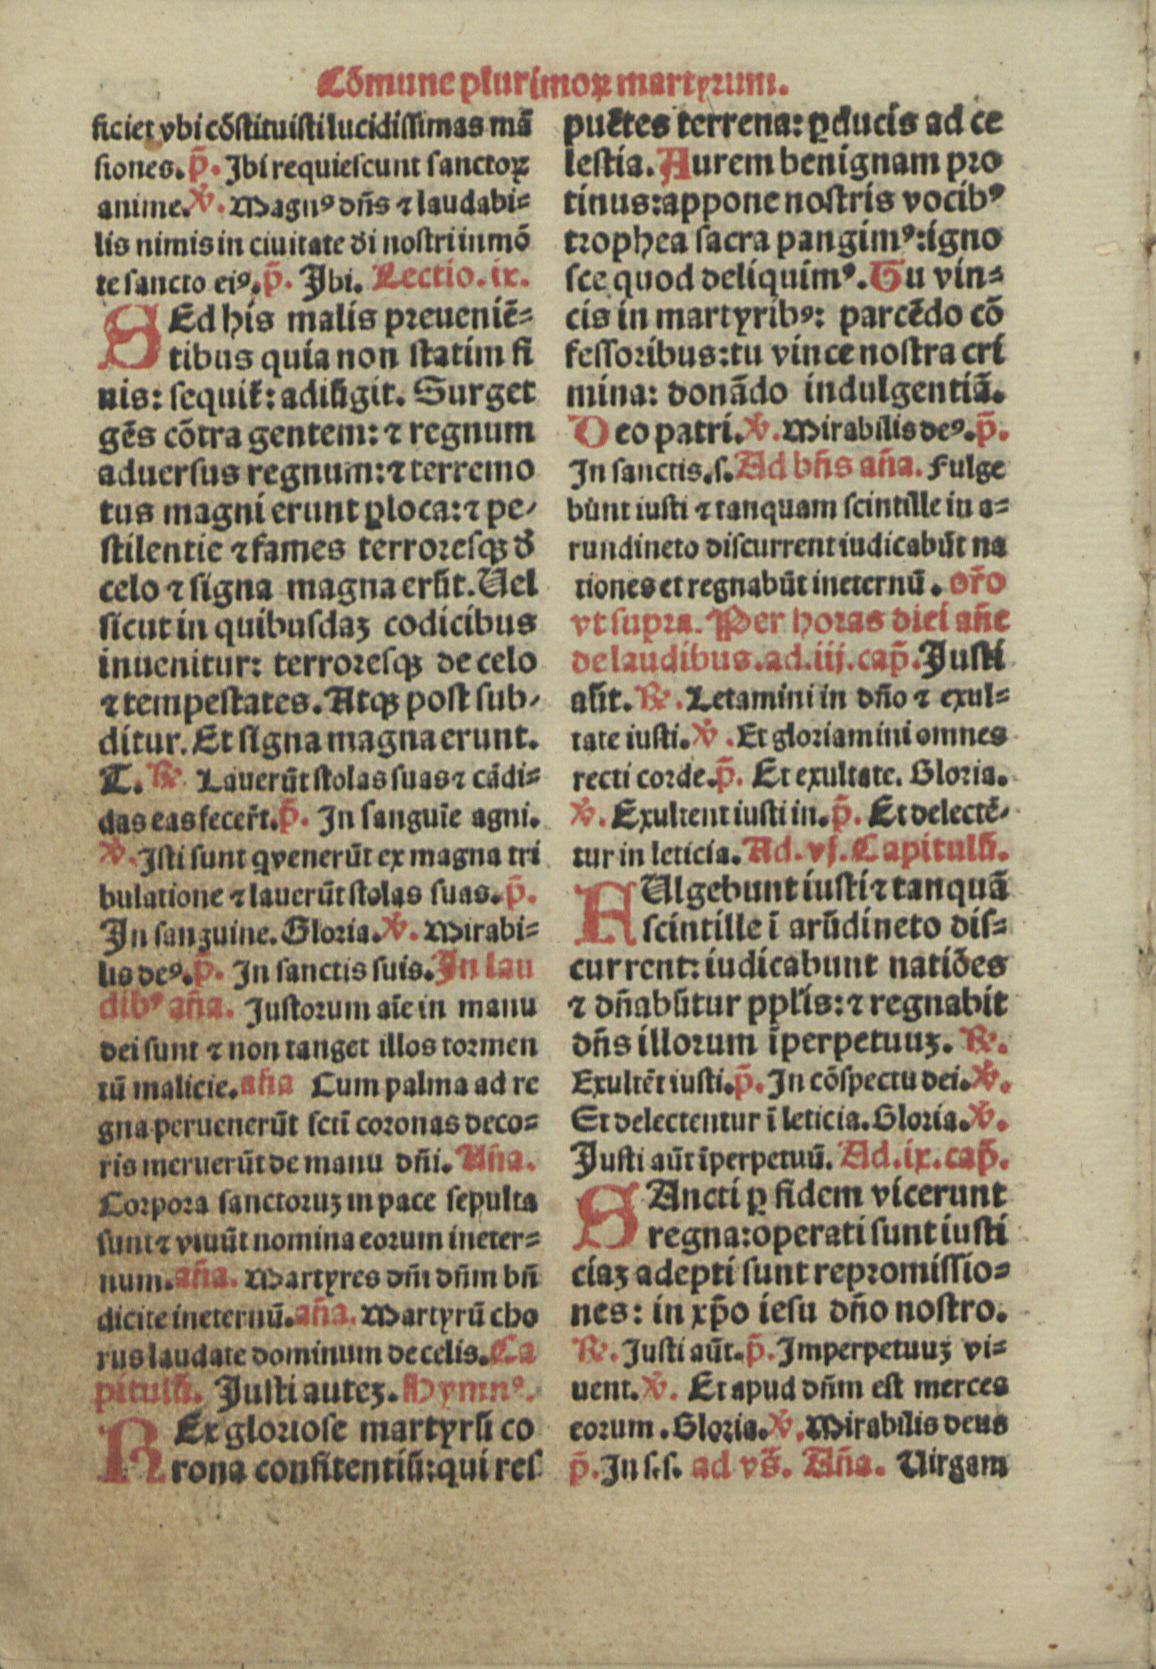 Cõmune plurimoꝝ martyrum.
ficiet vbi cõstituisti lucidissimas mã
siones. p̃. Ibi requiescunt sanctoꝝ
anime. ℣. Magnꝰ dñs ⁊ laudabi-
lis nimis in ciuitate di nostri in mõ
te sancto eiꝰ. p̃. Ibi. Lectio. ix.
SEd his malis preueniẽ-
tibus quia non statim fi
nis: sequit̃: adiũgit. Surget
gẽs cõtra gentem: ⁊ regnum
aduersus regnum: ⁊ terremo
tus magni erunt ꝑ loca: ⁊ pe-
stilentie ⁊ fames terroresqꝫ đ
celo ⁊ signa magna erũt. Uel
sicut in quibusdaꝫ codicibus
inuenitur: terroresqꝫ de celo
⁊ tempestates. Atqꝫ post sub-
ditur. Et signa magna erunt.
T. ℟. Lauerũt stolas suas ⁊ cãdi-
das eas fecer̃t. p̃. In sanguĩe agni.
℣. Isti sunt q̇ venerũt ex magna tri
bulatione ⁊ lauerũt stolas suas. p̃.
In sanguine. Gloria. ℣. Mirabi-
lis deꝰ. p̃. In sanctis suis. In lau
dibꝰ añа. Iustorum aĩe in manu
dei sunt ⁊ non tanget illos tormen
tũ malicie. aña Cum palma ad re
gna peruenerũt scti̇̃ coronas deco-
ris meruerũt de manu dñi. Aña.
Corpora sanctoruꝫ in pace sepulta
sunt ⁊ viuũt nomina eorum in eter-
num. aña. Martyres dñi dñm bñ
dicite in eternũ. aña. Martyrũ cho
rus laudate dominum de celis. Ca
pitulũ. Iusti auteꝫ. Hymnꝰ.
REx gloriose martyrũ co
rona confitentiũ: qui res
puẽtes terrena: ꝑducis ad ce
lestia. Aurem benignam pro
tinus: appone nostris vocibꝰ
trophea sacra pangimꝰ: igno
sce quod deliquimꝰ. Tu vin-
cis in martyribꝰ: parcẽdo cõ
fessoribus: tu vince nostra cri
mina: donãdo indulgentiã.
Deo patri. ℣. Mirabilis deꝰ. p̃.
In sanctis. s. Ad bñs aña. Fulge
bũnt iusti ⁊ tanquam scintille in a-
rundineto discurrent iudicabũt na
tiones et regnabũt in eternũ. or̃o
vt supra. Per horas diei añe
de laudibus. ad. iij. cap̃. Iusti
aũt. ℟. Letamini in dño ⁊ exul-
tate iusti. ℣. Et gloriamini omnes
recti corde. p̃. Et exultate. Gloria.
℣. Exultent iusti in. p̃. Et delectẽ-
tur in leticia. Ad. vj. Capitulũ.
FUlgebunt iusti ⁊ tanquã
scintille ĩ arũdineto dis-
current: iudicabunt natiões
⁊ dñabũtur ppl̃is: ⁊ regnabit
dñs illorum ĩperpetuuꝫ. ℟.
Exultẽt iusti. p̃. In cõspectu dei. ℣.
Et delectentur ĩ leticia. Gloria. ℣.
Iusti aũt ĩperpetuũ. Ad. ix. cap̃.
SAncti ꝑ fidem vicerunt
regna: operati sunt iusti
ciaꝫ adepti sunt repromissio-
nes: in xp̃o iesu dño nostro.
℟. Iusti aũt. p̃. Imperpetuuꝫ vi-
uent. ℣. Et apud dñm est merces
eorum. Gloria. ℣. Mirabilis deus
p̃. In s. s. ad vs̃. Aña. Uirgam